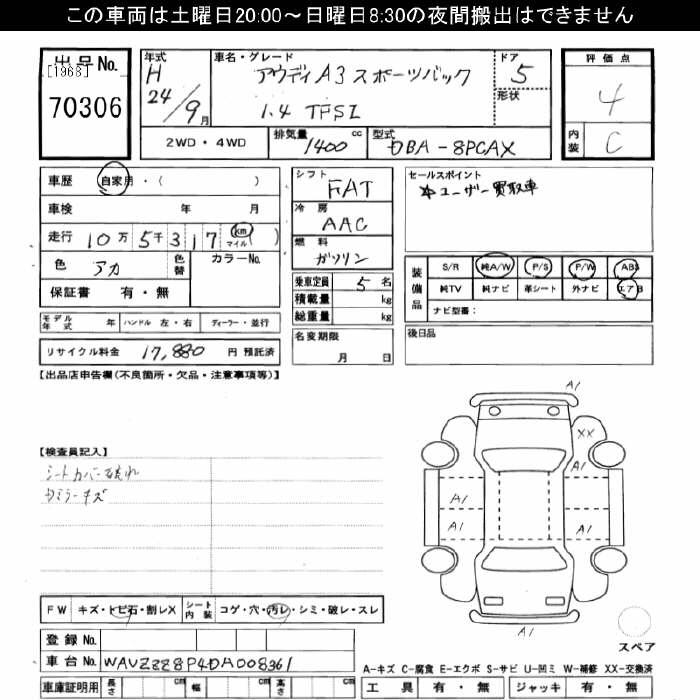 この車両は土曜日20:00～日曜日8:30の夜間搬出はできません
出品No.
[1968]
70306
年式
H
24/9月
車名・グレード
アウディA3スポーツバック
1.4 TFSI
ドア
5
形状
2WD・4WD
排気量
1400 cc
型式
DBA-8PCAX
評価点
4
内装
C
車歴 自家用・( )
車検 年 月
走行 10万5千317 km マイル ( )
色 アカ 色替
カラーNo.
保証書 有・無
シフト
FAT
冷房
AAC
燃料
ガソリン
乗車定員 5 名
積載量 kg
総重量 kg
セールスポイント
ユーザー買取車
装備品
S/R 純A/W P/S P/W ABS
純TV 純ナビ 革シート 外ナビ エアB
ナビ型番:
モデル年式 年 ハンドル 左・右 ディーラー・並行
リサイクル料金 17,880 円 預託済
名変期限
月 日
後日品
【出品店申告欄(不良箇所・欠品・注意事項等)】
【検査員記入】
シートカバー破れ
ミラーキズ
A1
XX
A1
A1
A1
A1
A1
A1
スペア
FW キズ・トビ石・割レX
シート内装 コゲ・穴・汚レ・シミ・破レ・スレ
登録No.
車台No. WAUZZZ8P4DA008361
車庫証明用 長さ cm 幅 cm 高さ cm
A-キズ C-腐食 E-エクボ S-サビ U-凹ミ W-補修 XX-交換済
工具 有・無 ジャッキ 有・無